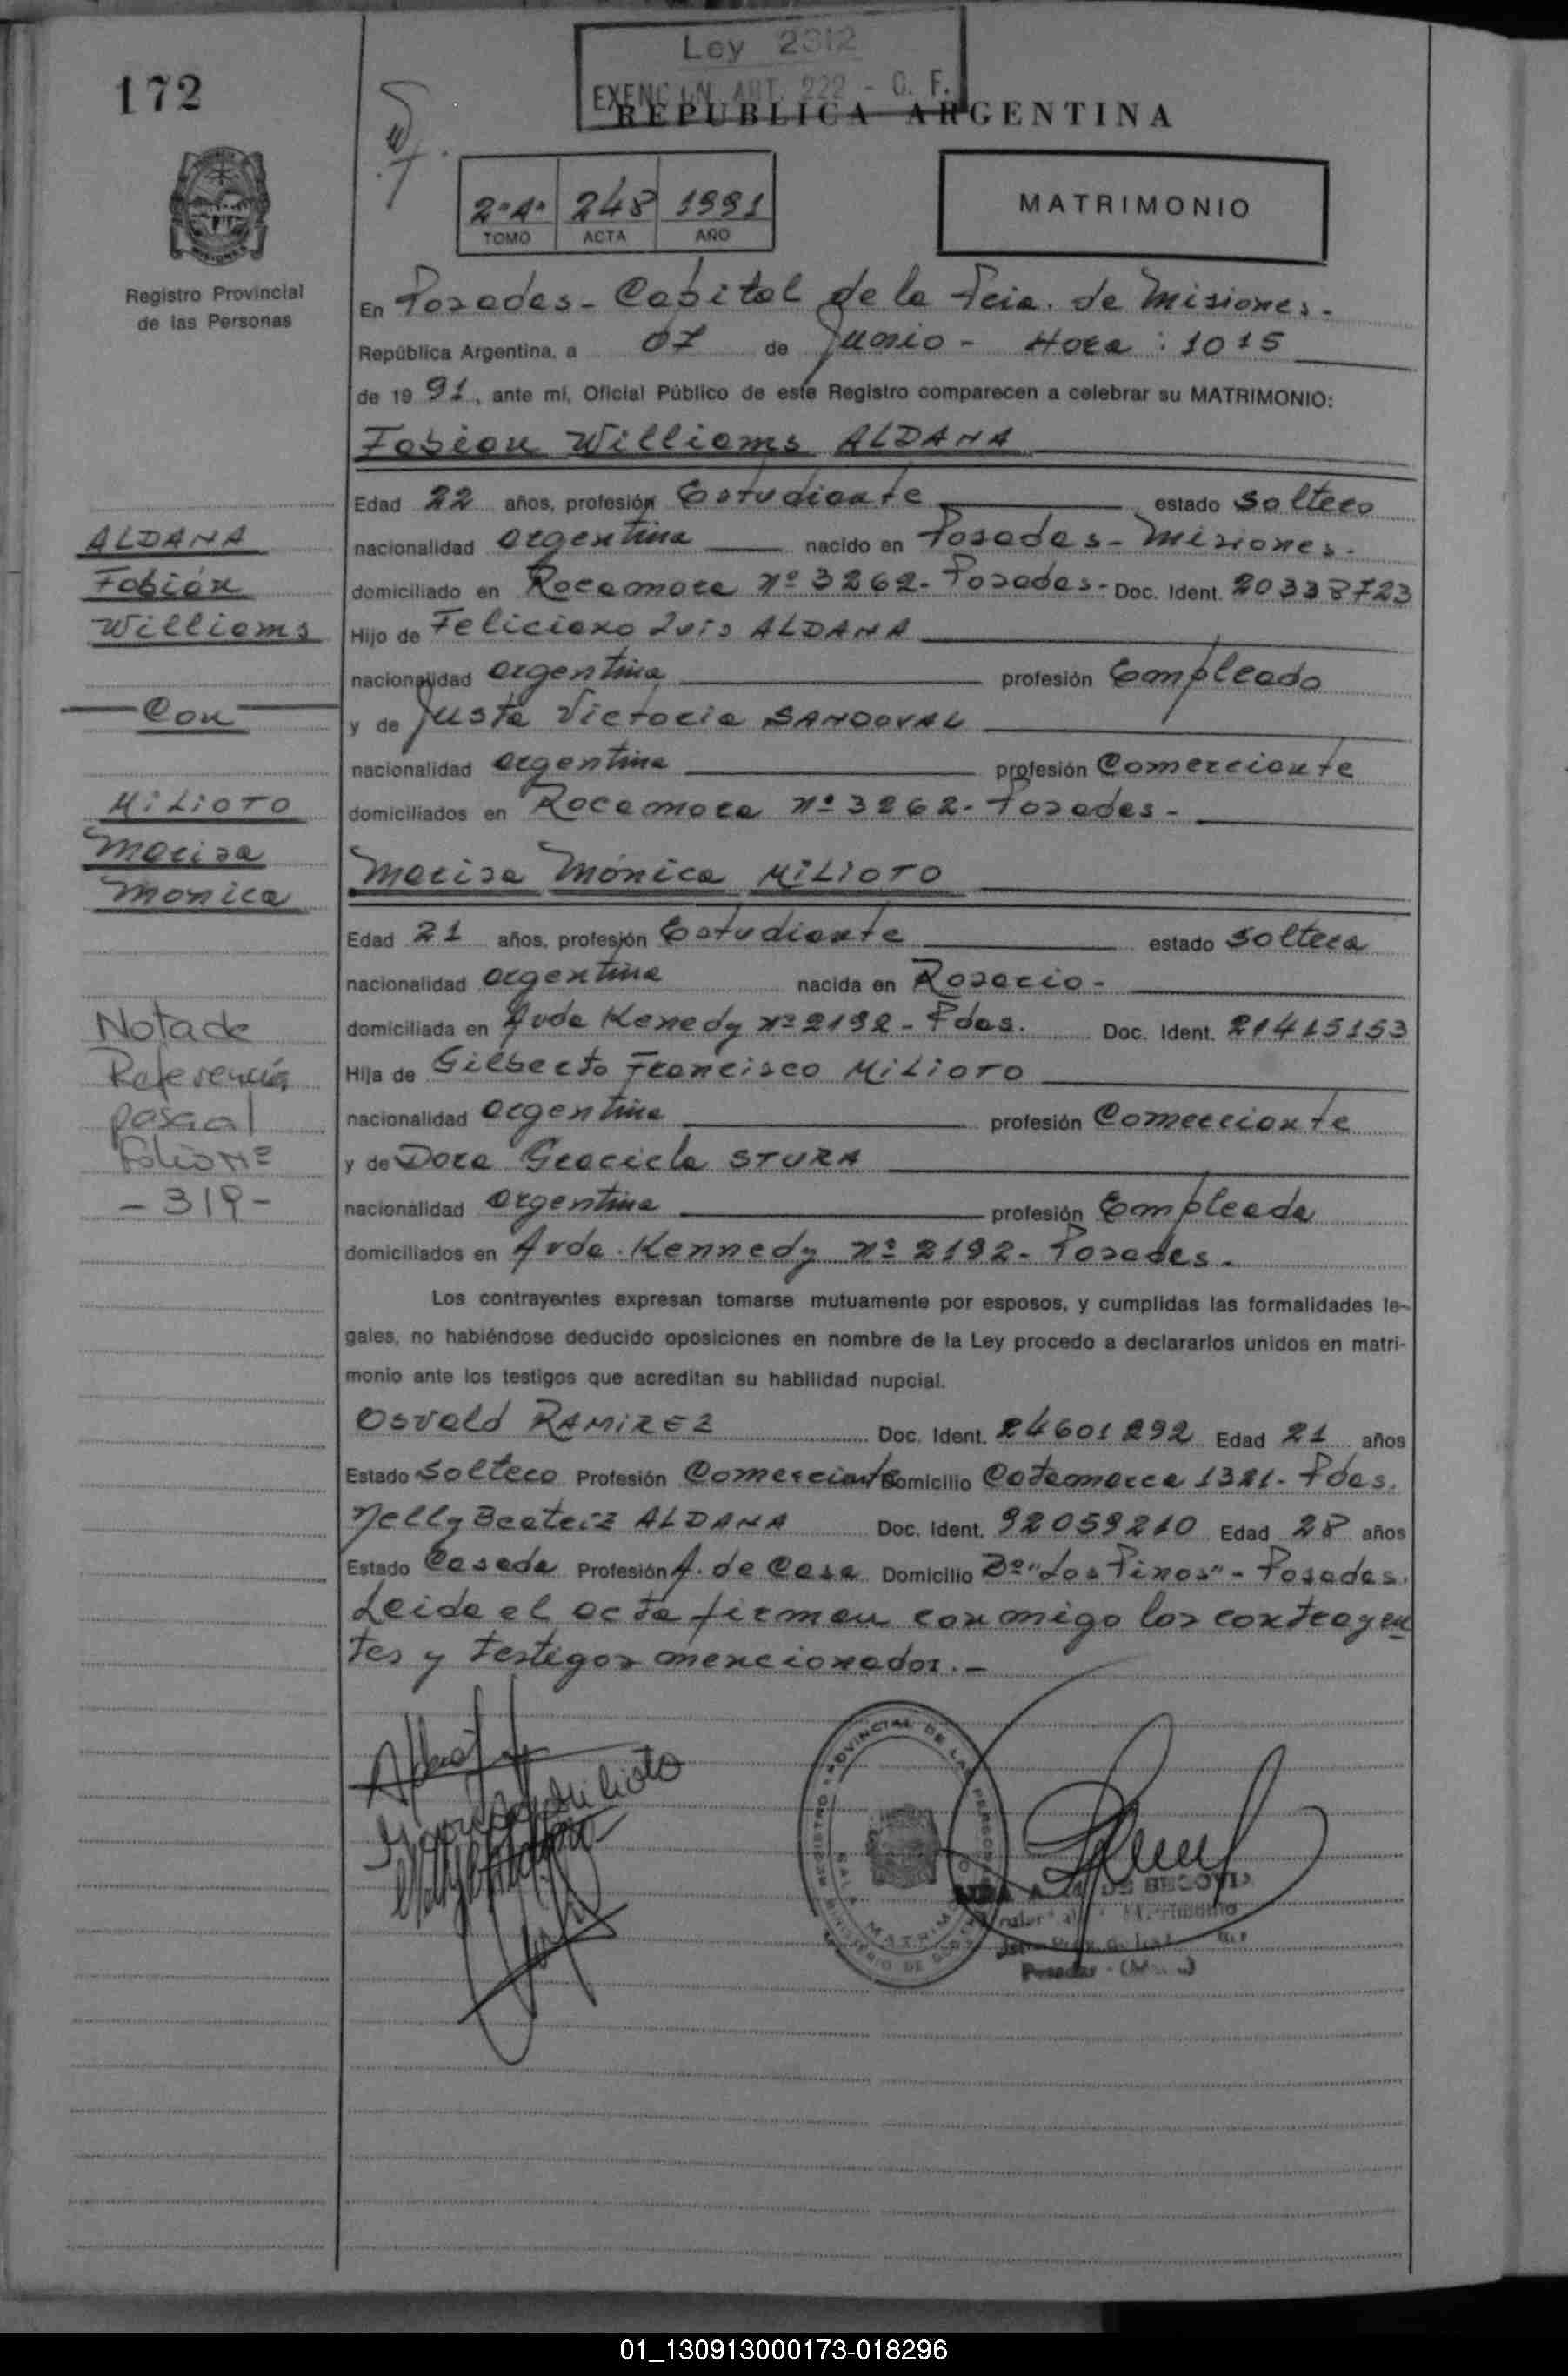 172
Ley 2312
EXENCION ART. 222 - C. F.
REPUBLICA ARGENTINA
2º A° 248 1991
TOMO ACTA AÑO
MATRIMONIO
Registro Provincial
de las Personas
En Posadas - Capital de la Pcia. de Misiones -
República Argentina, a 07 de Junio - Hora : 10 15
de 19 91, ante mí, Oficial Público de este Registro comparecen a celebrar su MATRIMONIO:
Fabian Williams ALDANA
Edad 22 años, profesión Estudiante estado soltero
nacionalidad argentina nacido en Posadas - Misiones -
domiciliado en Rocamora nº 3262 - Posadas - Doc. Ident. 20338723
Hijo de Feliciano Luis ALDANA
nacionalidad argentina profesión Empleado
y de Justa Victoria SANDOVAL
nacionalidad argentina profesión Comerciante
domiciliados en Rocamora nº 3262 - Posadas -
Marisa Mónica MILIOTO
Edad 21 años, profesión Estudiante estado soltera
nacionalidad argentina nacida en Rosario -
domiciliada en Avda Kenedy nº 2192 - Pdas. Doc. Ident. 21415153
Hija de Gilberto Francisco MILIOTO
nacionalidad argentina profesión Comerciante
y de Dora Graciela STURA
nacionalidad argentina profesión Empleada
domiciliados en Avda. Kennedy nº 2192 - Posadas -
Los contrayentes expresan tomarse mutuamente por esposos, y cumplidas las formalidades le-
gales, no habiéndose deducido oposiciones en nombre de la Ley procedo a declararlos unidos en matri-
monio ante los testigos que acreditan su habilidad nupcial.
Osvald RAMIREZ Doc. Ident. 24601292 Edad 21 años
Estado Soltero Profesión Comerciante Domicilio Catamarca 1321 - Pdas.
Nelly Beatriz ALDANA Doc. Ident. 92059210 Edad 28 años
Estado Casada Profesión A. de Casa Domicilio Bº "Los Pinos" - Posadas.
Leida el acta firman conmigo los contrayen
tes y testigos mencionados. -
ALDANA
Fabián
Williams
Con
MILIOTO
Marisa
Monica
Nota de
Referencia
pasa al
Folio Nº
- 319 -
Milioto
REGISTRO PROVINCIAL DE LAS PERSONAS
SALA MATRIM
MINISTERIO DE GOB
DE SEGOVIA
Posadas
01_130913000173-018296